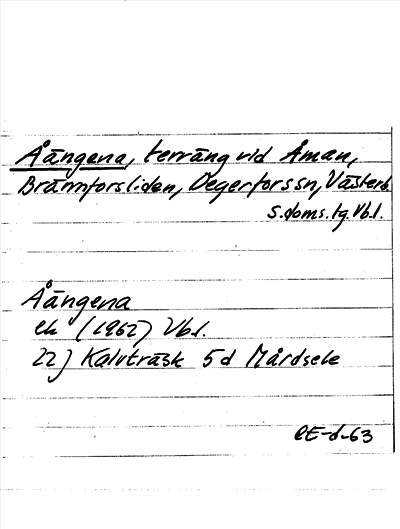 Åängena, terräng vid Åman,
Brännforsliden, Degerforssn, Västerb
s. doms. tg. Vb.l.
Åängena
ek (1962) Vb.l.
22) Kalvträsk 5d Mårdsele
CE-d-63